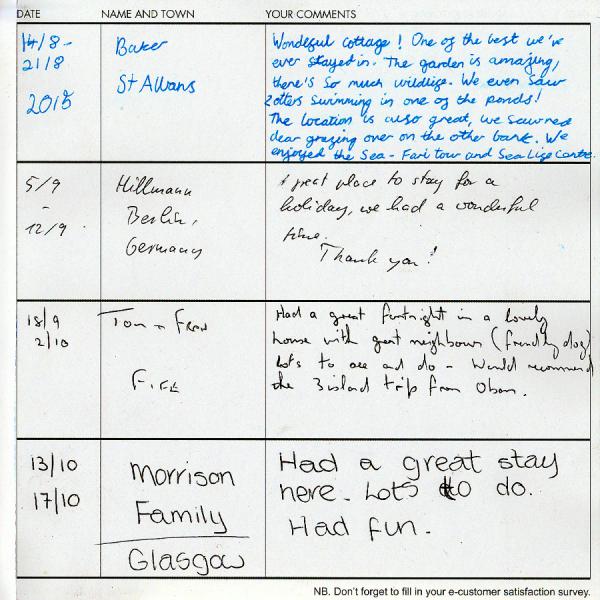 DATE NAME AND TOWN YOUR COMMENTS
14/8 -
21/8
2015
Baker
St Albans
Wondeful cottage! One of the best we've
ever stayed in. The garden is amazing,
there's so much wildlife. We even saw
2 otters swimming in one of the ponds!
The location is also great, we saw red
dear grazing over on the other bank. We
enjoyed the Sea-Fari tour and Sea Life Centre.
5/9
-
12/9
Hillmann
Berlin,
Germany
A great place to stay for a
holiday, we had a wonderful
time.
Thank you!
18/9
2/10
Tom + Fran
FIFE
Had a great fortnight in a lovely
house with great neighbours (friendly dog)
Lots to see and do - Would recommend
the 3 island trip from Oban.
13/10
17/10
Morrison
Family
Glasgow
Had a great stay
here. Lots to do.
Had fun.
NB. Don't forget to fill in your e-customer satisfaction survey.